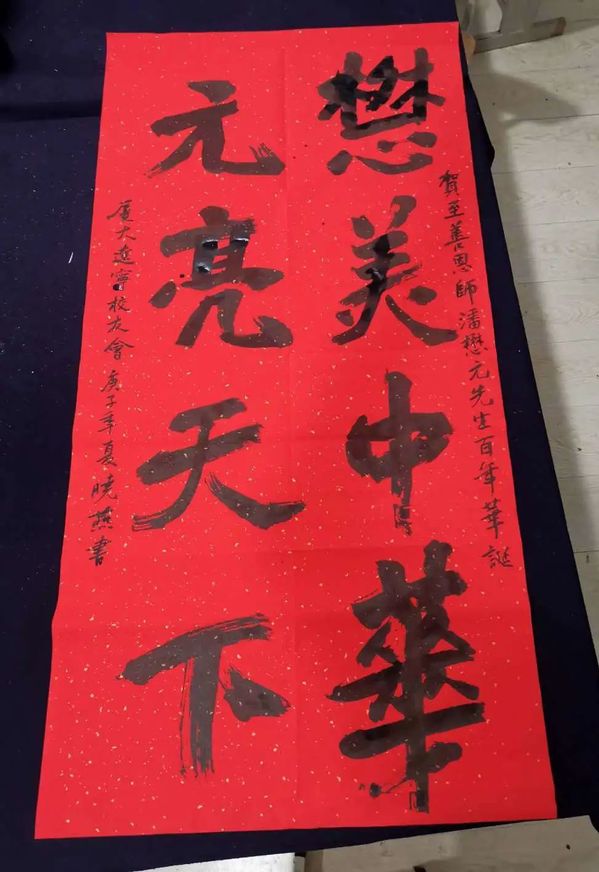 賀至善恩師潘懋元先生百年華誕
懋美中華
元亮天下
廈大遼寧校友會庚子年夏曉燕書